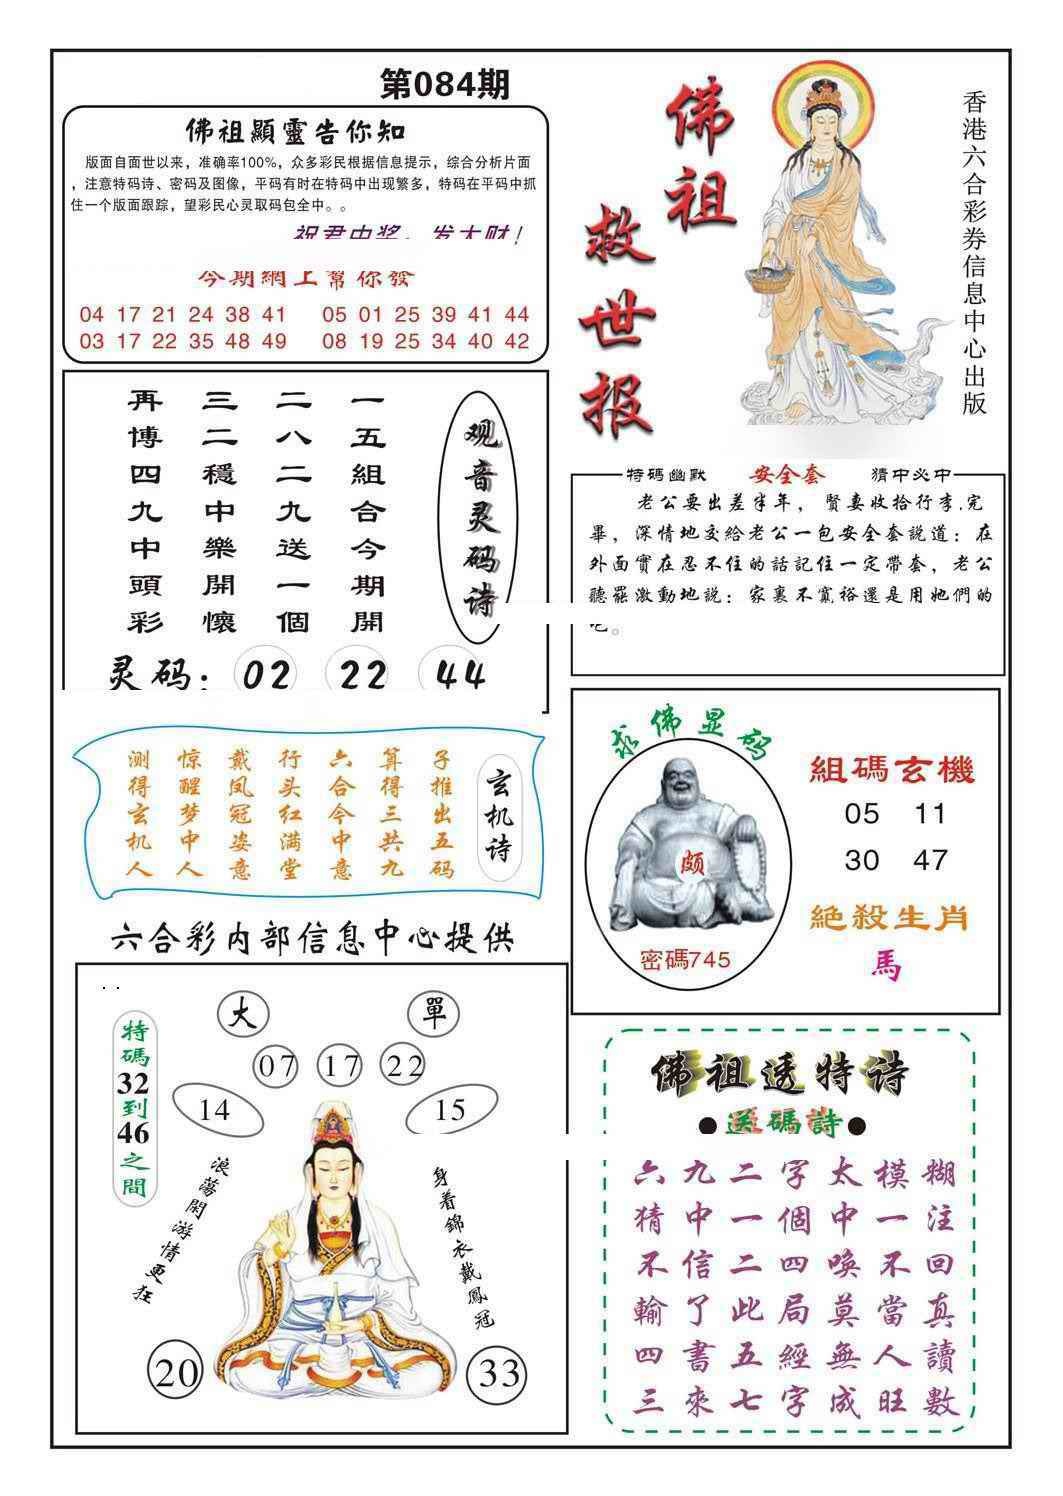 第084期
佛祖顯靈告你知
版面自面世以来，准确率100%，众多彩民根据信息提示，综合分析片面
，注意特码诗、密码及图像，平码有时在特码中出现繁多，特码在平码中抓
住一个版面跟踪，望彩民心灵取码包全中。。
祝君中奖，发大财！
今期網上幫你發
04 17 21 24 38 41 05 01 25 39 41 44
03 17 22 35 48 49 08 19 25 34 40 42
佛祖
救世报
香港六合彩券信息中心出版
观音灵码诗
一五組合今期開
二八二九送一個
三二穩中樂開懷
再博四九中頭彩
灵码：02 22 44
特碼幽默 安全套 猜中必中
老公要出差半年，賢妻收拾行李.完
畢，深情地交給老公一包安全套説道：在
外面實在忍不住的話記住一定帶套，老公
聽罷激動地説：家裏不寬裕還是用她們的
吧。
玄机诗
子推出五码
算得三共九
六合今中意
行头红满堂
戴凤冠姿意
惊醒梦中人
测得玄机人
求佛显码
颇
密碼745
組碼玄機
05 11
30 47
絕殺生肖
馬
六合彩内部信息中心提供
特碼32到46之間
大 單
07 17 22
14 15
浪蕩閑游情更狂
身着錦衣戴鳳冠
20 33
佛祖透特诗
●送碼詩●
六九二字太模糊
猜中一個中一注
不信二四喚不回
輸了此局莫當真
四書五經無人讀
三來七字成旺數